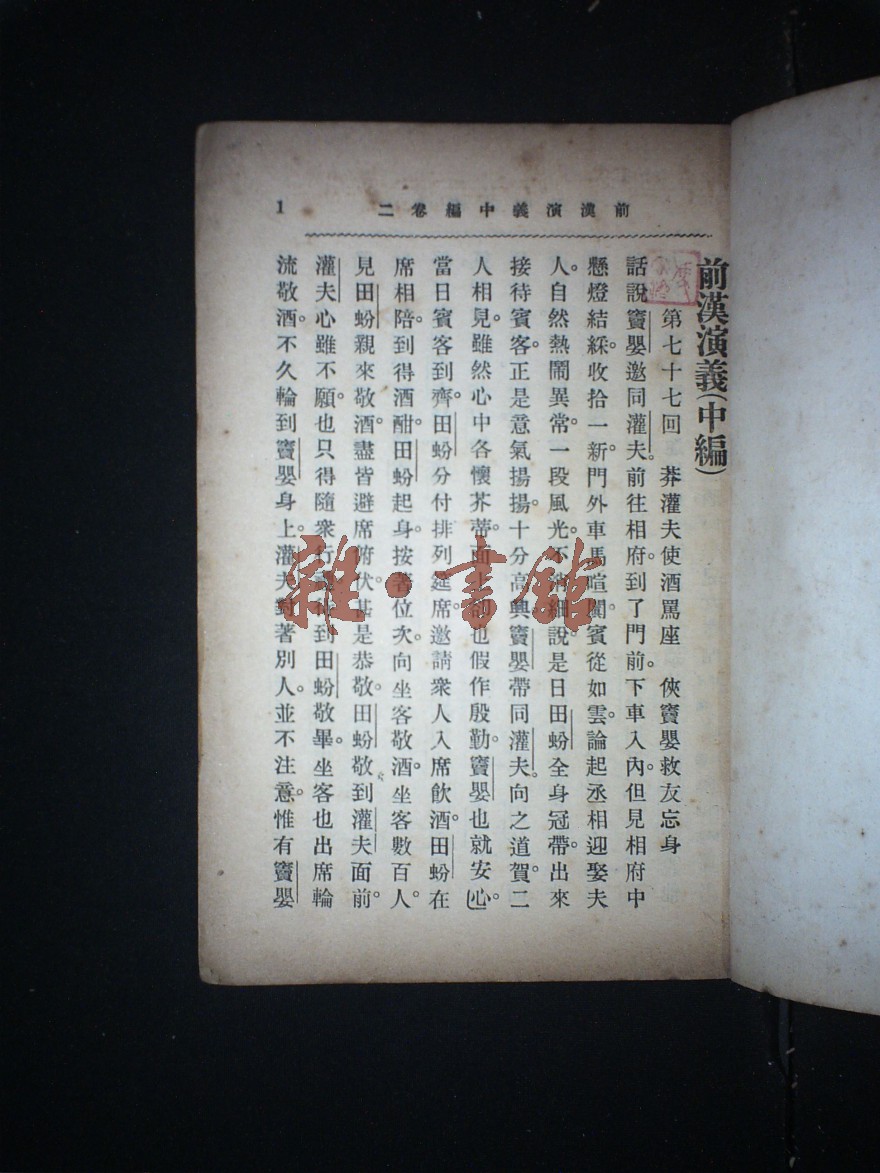 前漢演義中編卷二 1
前漢演義(中編)
第七十七回 莽灌夫使酒罵座 俠竇嬰救友忘身
話說竇嬰邀同灌夫。前往相府。到了門前。下車入內。但見相府中
懸燈結綵。收拾一新。門外車馬喧闐。賓從如雲。論起丞相迎娶夫
人。自然熱鬧異常。一段風光。不細說。是日田蚡全身冠帶。出來
接待賓客。正是意氣揚揚。十分高興。竇嬰帶同灌夫。向之道賀。二
人相見。雖然心中各懷芥蒂。面上卻也假作殷勤。竇嬰也就安心。
當日賓客到齊。田蚡分付排列筵席。邀請衆人入席飲酒。田蚡在
席相陪。到得酒酣。田蚡起身。按著位次。向坐客敬酒。坐客數百人。
見田蚡親來敬酒。盡皆避席俯伏。甚是恭敬。田蚡敬到灌夫面前。
灌夫心雖不願。也只得隨衆行到田蚡敬畢。坐客也出席輪
流敬酒。不久輪到竇嬰身上。灌夫對著別人。並不注意。惟有竇嬰
雜·書館